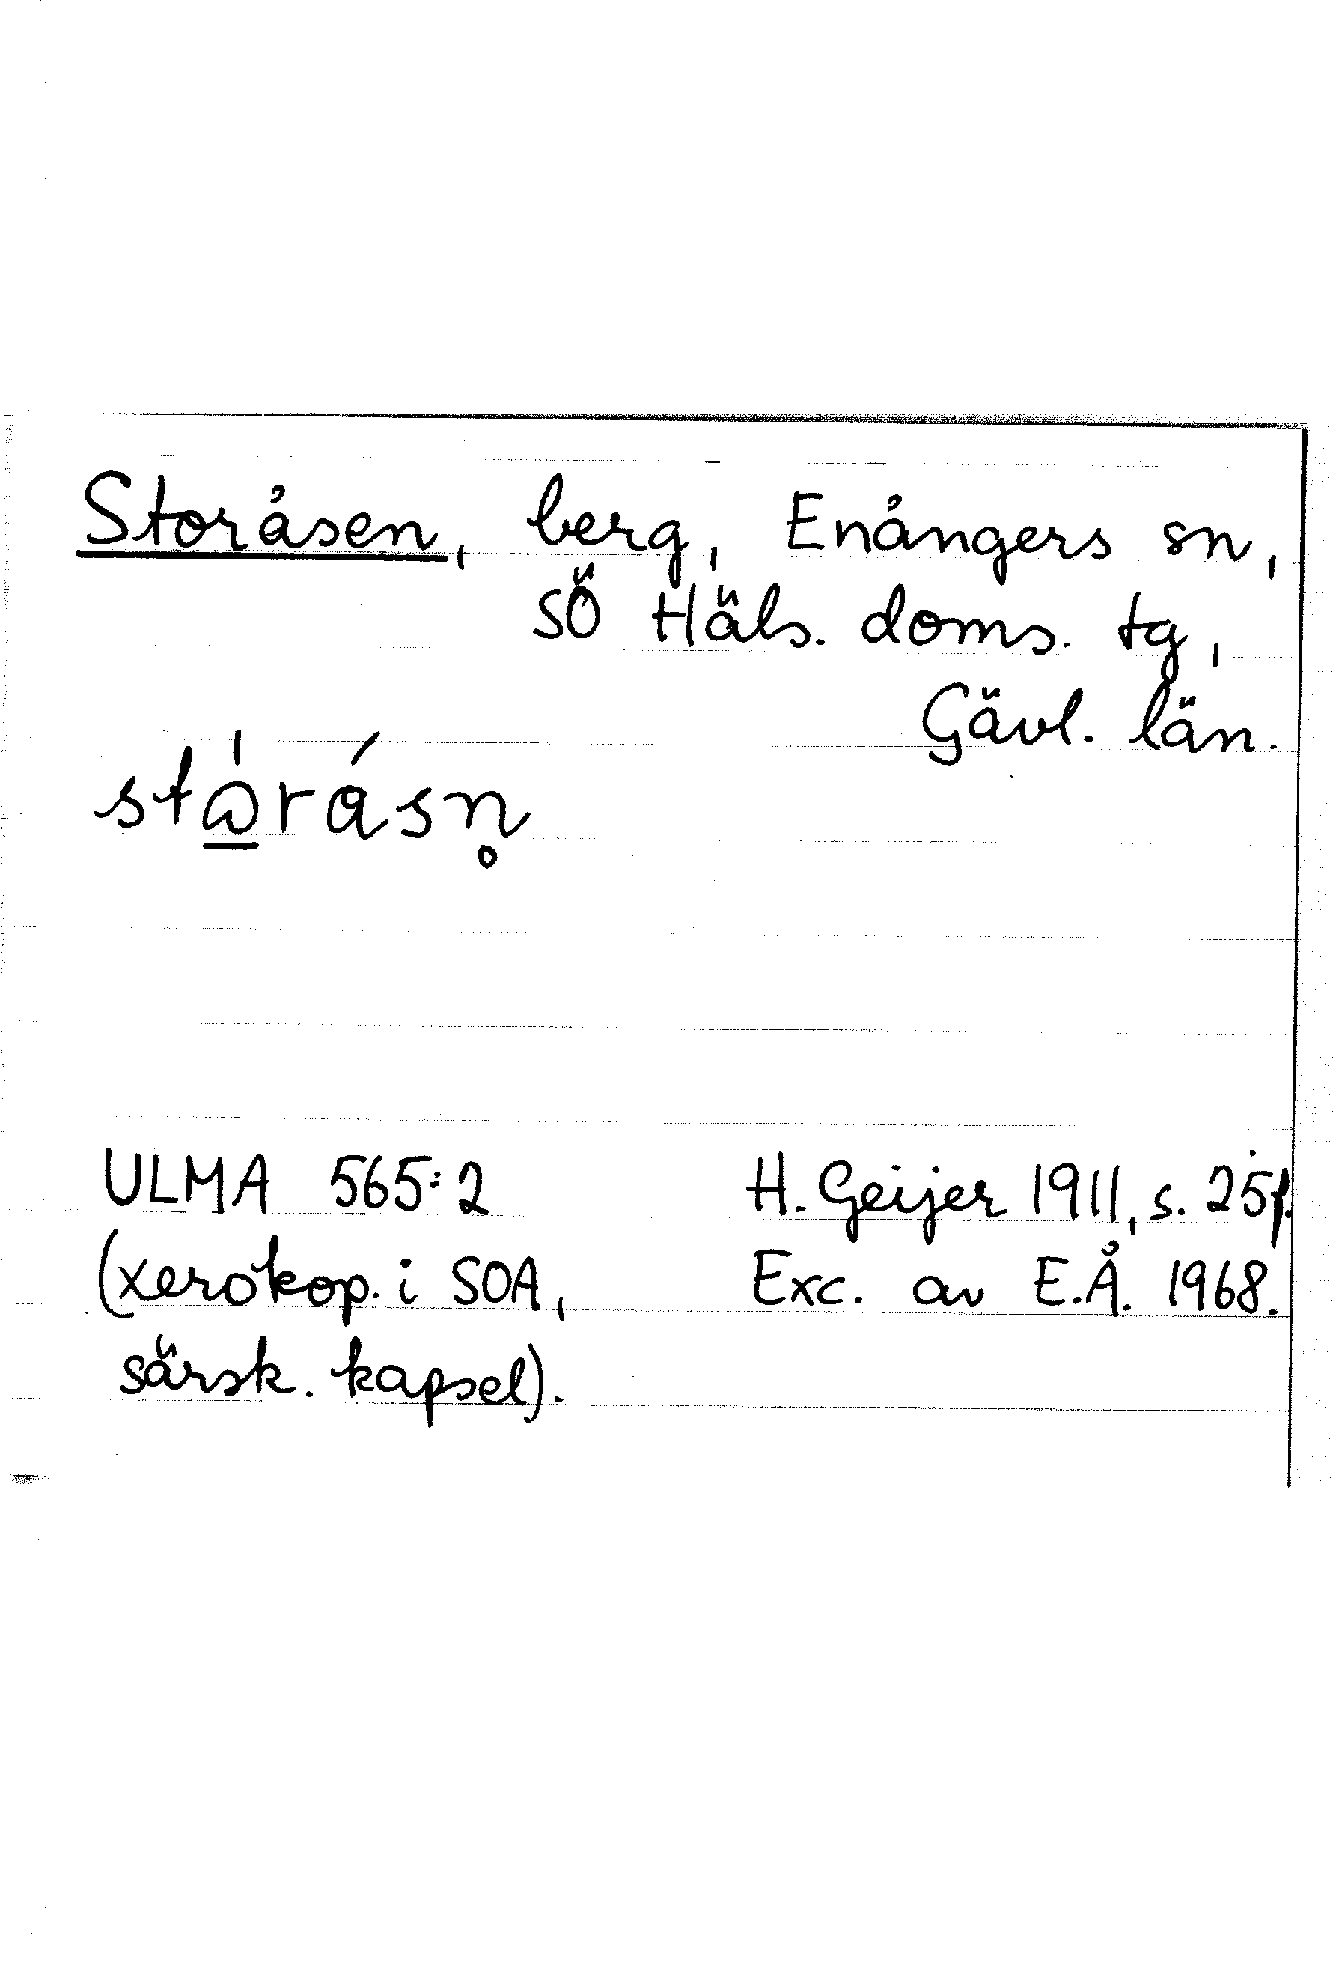 Storåsen, berg, Enångers sn,
SÖ Häls. doms. tg,
Gävl. län.
ULMA 565:2
(xerokop. i SOA,
särsk. kapsel).
H. Geijer 1911, s. 25f.
Exc. av E.Å. 1968.